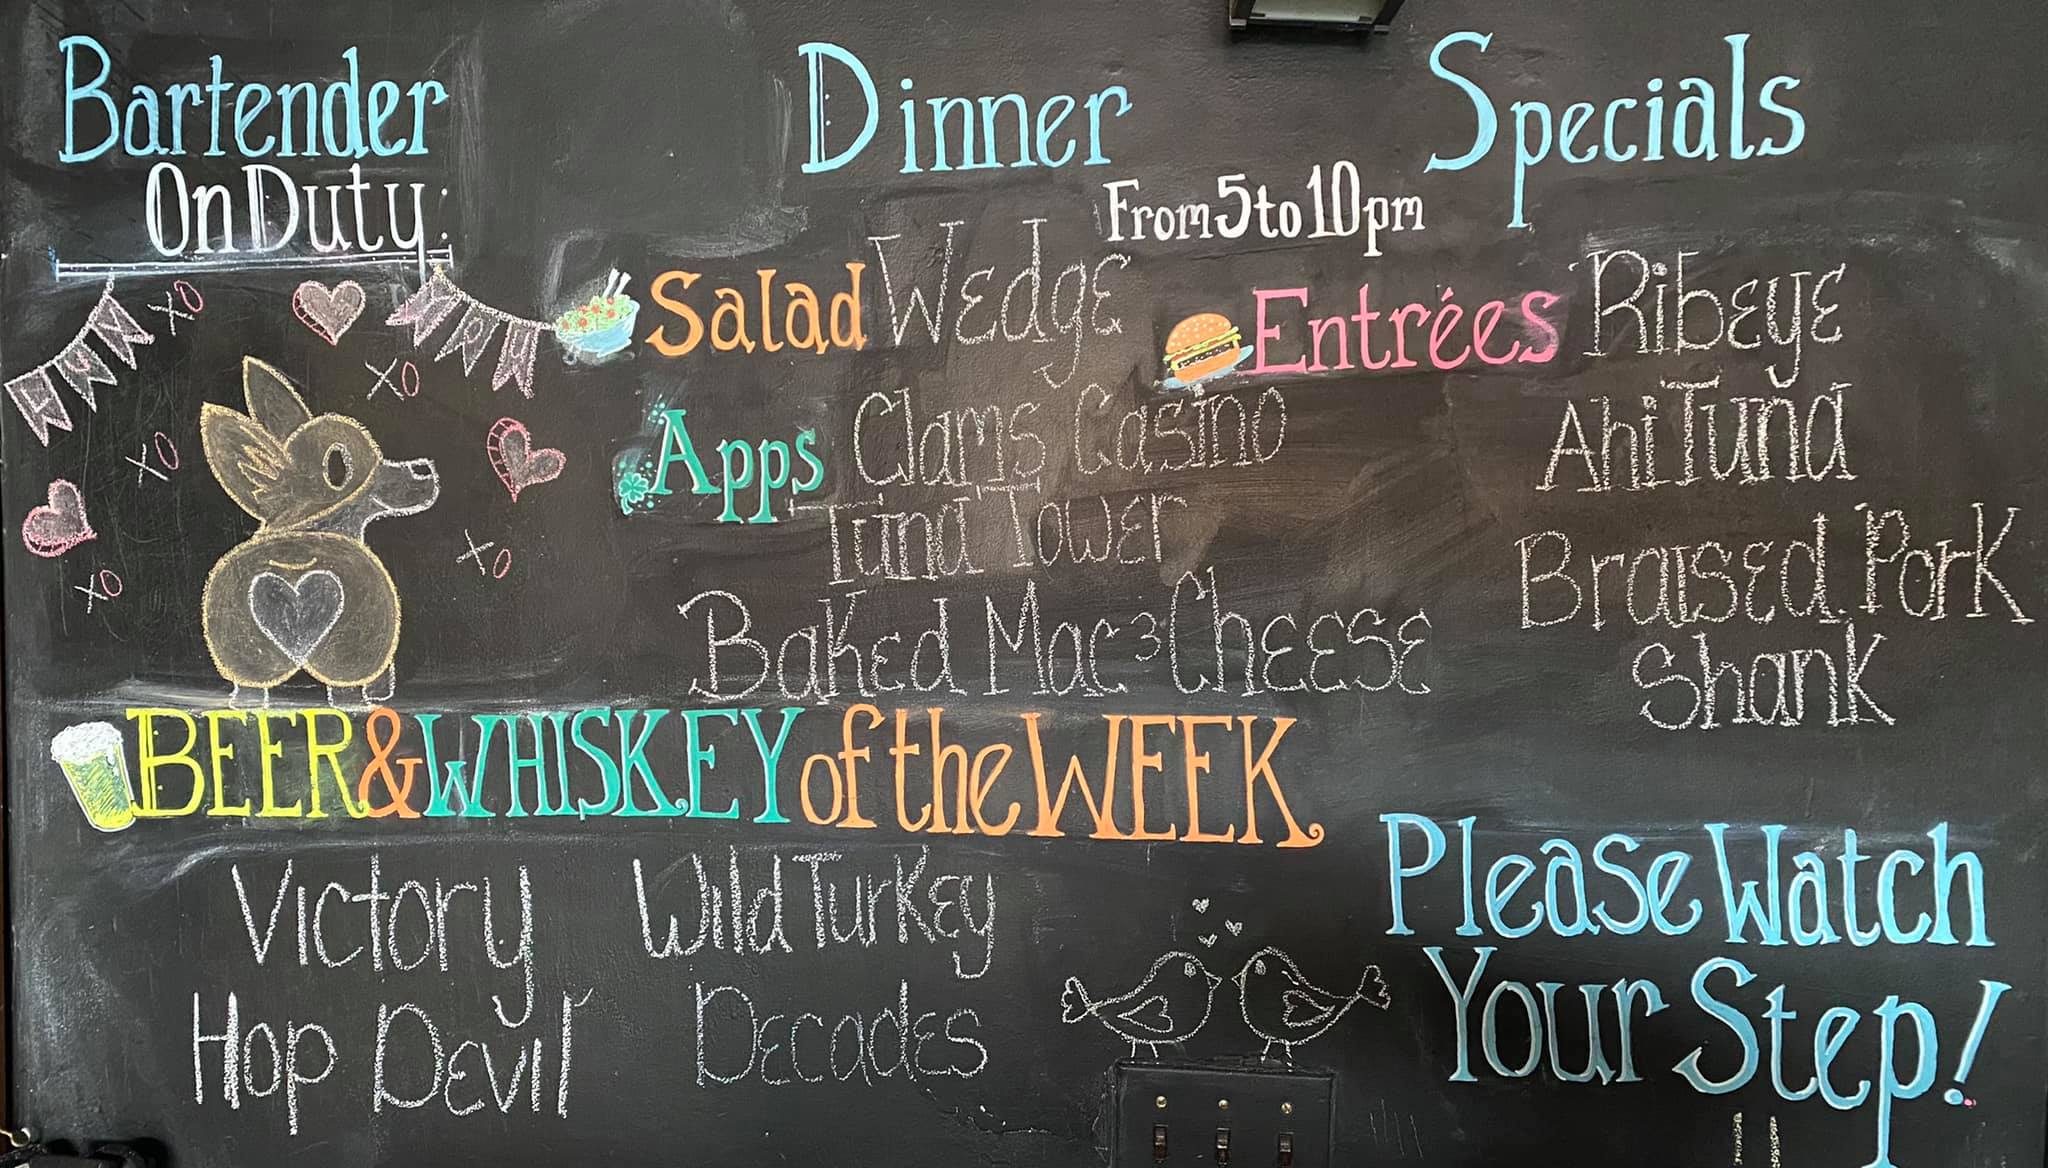 Bartender
On Duty:
XO
XO
XO
XO
XO
Dinner Specials
From 5 to 10pm
Salad Wedge
Apps Clams Casino
Tuna Tower
Baked Mac & Cheese
Entrées Ribeye
Ahi Tuna
Braised Pork
Shank
BEER & WHISKEY of the WEEK
Victory
Hop Devil
Wild Turkey
Decades
Please Watch
Your Step!